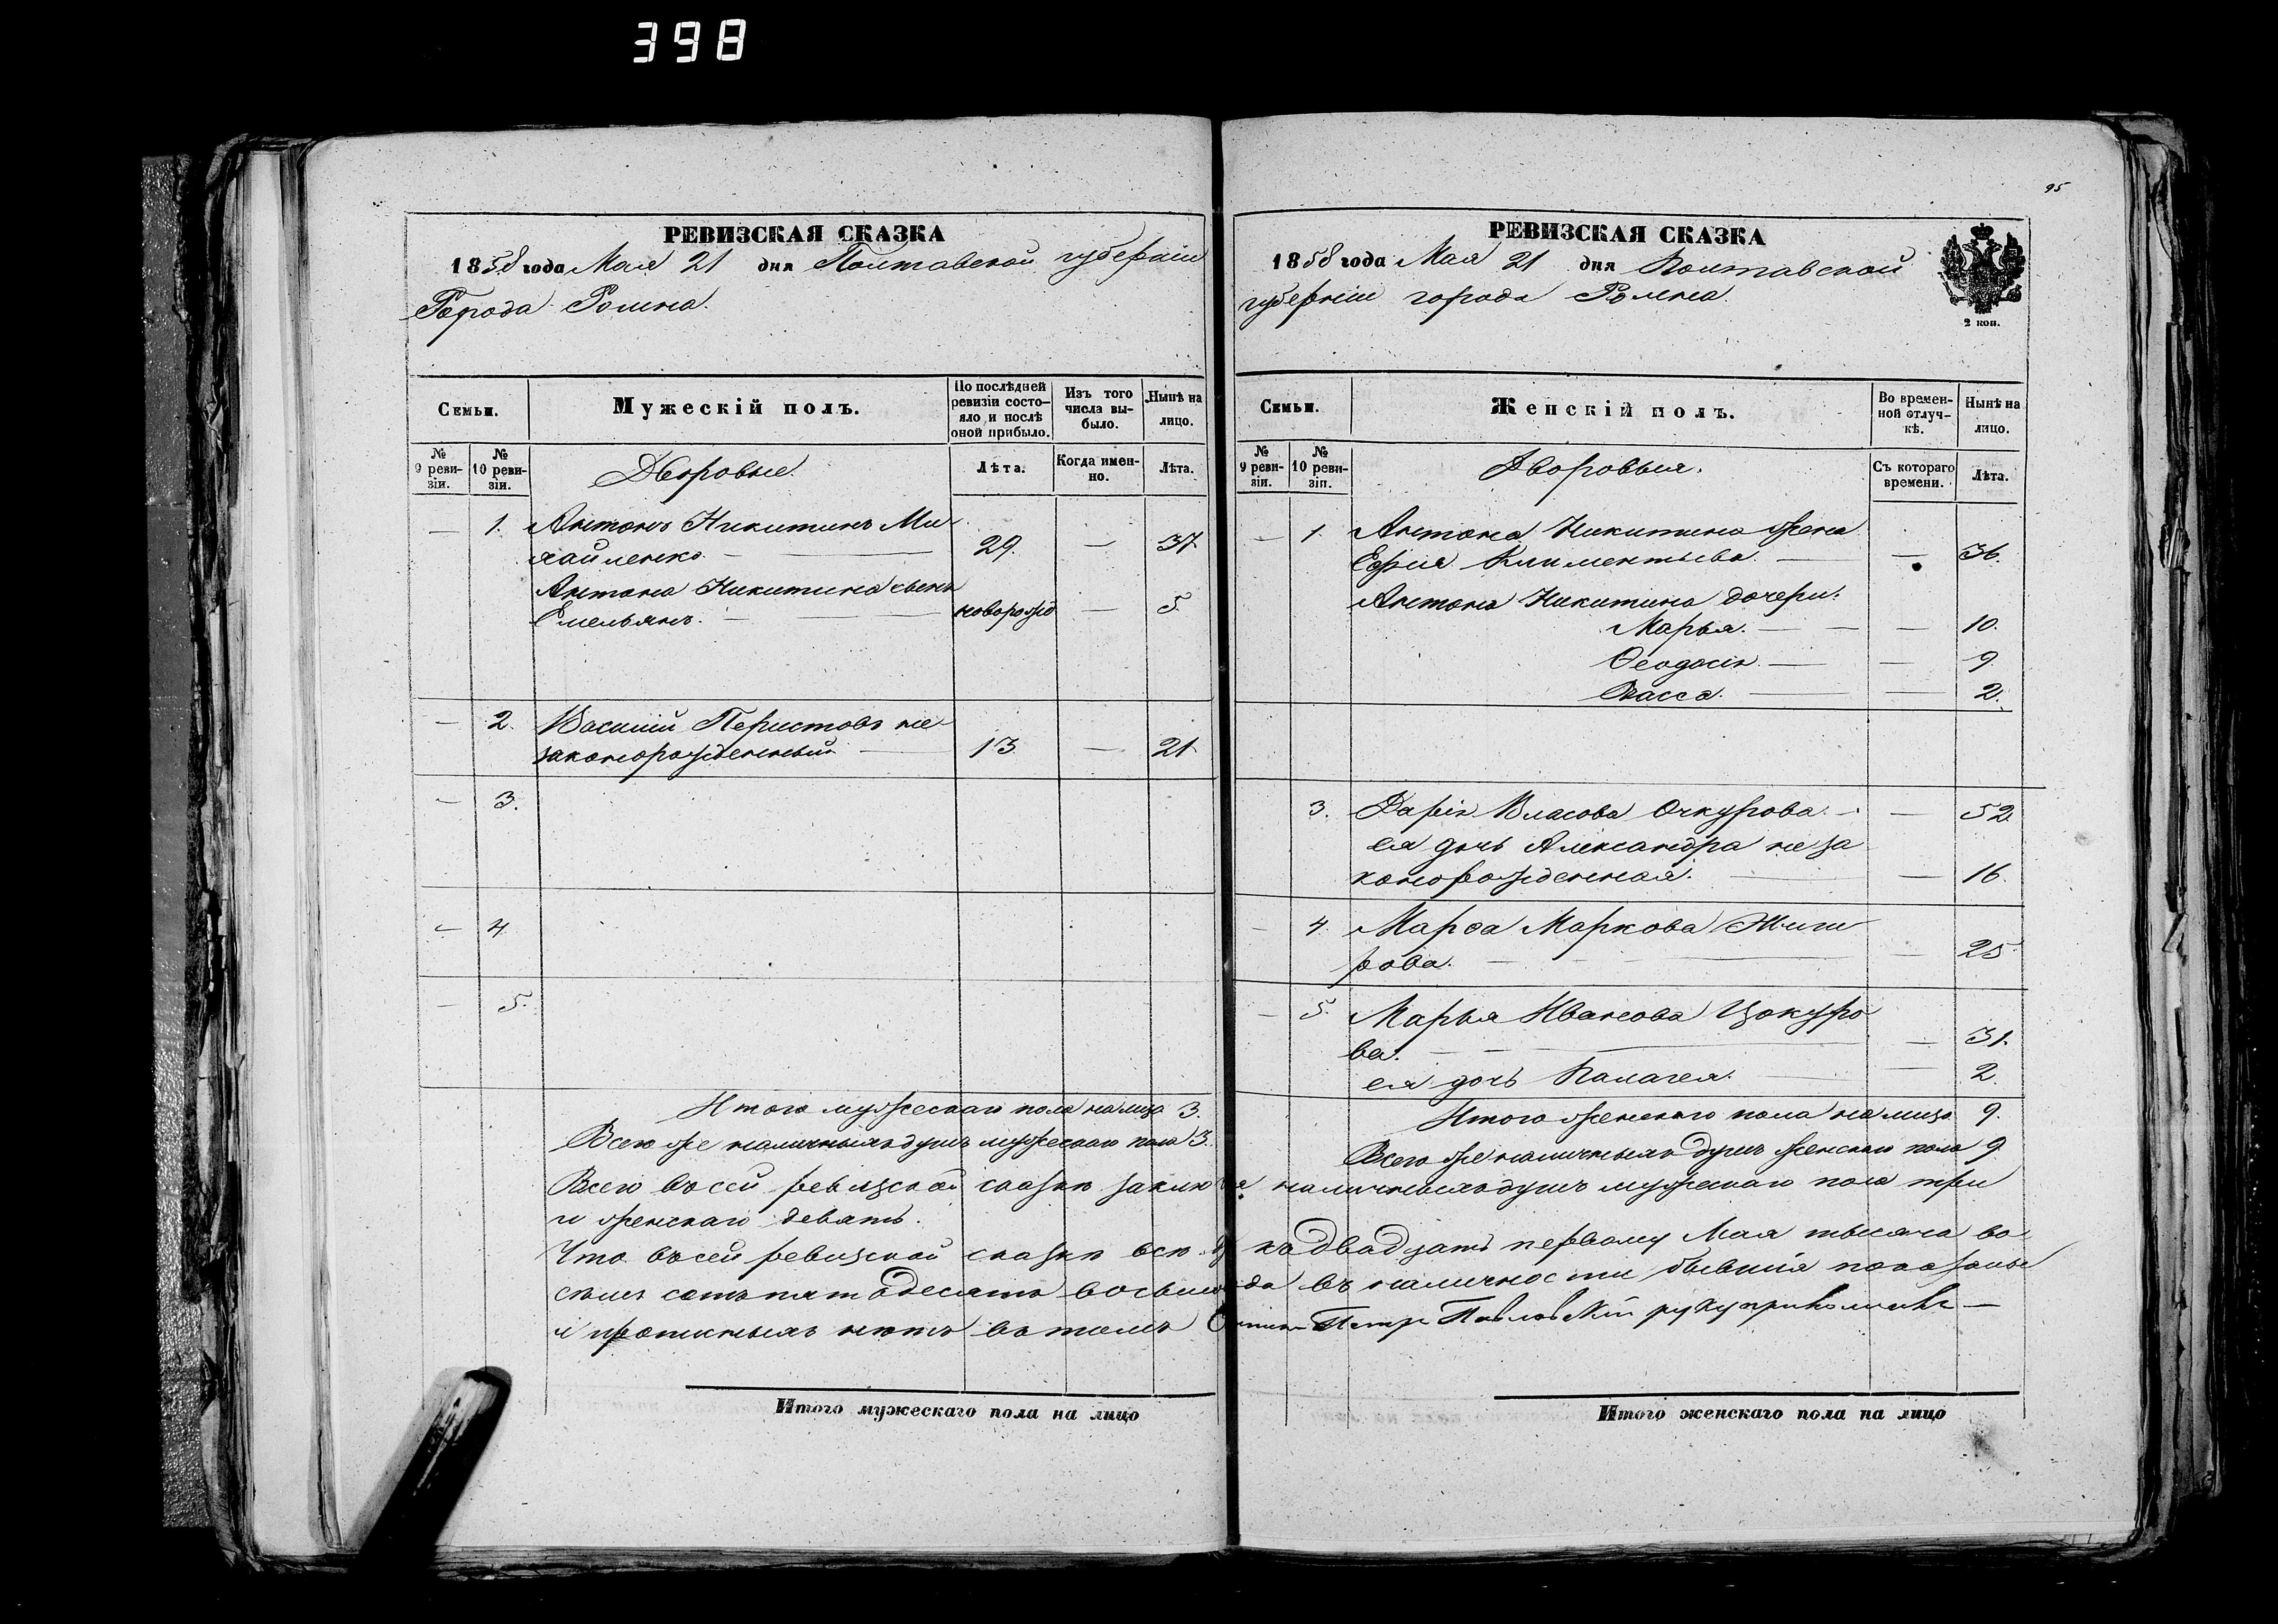 398
РЕВИЗСКАЯ СКАЗКА
1858 года Мая 21 дня Полтавской губерніи
Города Ромна.
Семьи.
Мужескій полъ.
По послѣдней ревизіи состояло и послѣ оной прибыло.
Изъ того числа выбыло.
Нынѣ на лицо.
№ 9 ревизіи.
№ 10 ревизіи.
Дворовые.
Лѣта.
Когда именно.
Лѣта.
— 1. Антонъ Никитинъ Ми
хайленко. — 29. — 37.
Антона Никитина сынъ
Емельянъ. — новорожд — 5.
— 2. Василій Перистовъ не
законорожденный — 13 — 21.
— 3.
— 4.
— 5.
Итого мужескаго пола на лицо 3.
Всего же наличныхъ душъ мужескаго пола 3.
95
РЕВИЗСКАЯ СКАЗКА
1858 года Мая 21 дня Полтавской
губерніи города Ромна.
2 коп.
Семьи.
Женскій полъ.
Во временной отлучкѣ.
Нынѣ на лицо.
№ 9 ревизіи.
№ 10 ревизіи.
Дворовыя.
Съ котораго времени.
Лѣта.
— 1. Антона Никитина жена
Климентьева. — 36.
Антона Никитина дочери:
Марья. — 10.
Ѳеодосія. — 9
2.
3. Дарія Власова Очкурова. — 52
ея дочь Александра неза
конорожденная. — 16.
— 4. Марѳа Маркова Жиги
рова. — 25
— 5. Марья Иванова Цокуро
ва. — 31.
ея дочь Палагея. — 2.
Итого женскаго пола на лицо 9.
Всего же наличныхъ душъ женскаго пола 9
Всего въ сей ревизской сказкѣ наличныхъ душъ мужескаго пола три
и женскаго девять.
Что въ сей ревизской сказкѣ всѣ къ двадцать первому Мая тысяча во
семь сотъ пятьдесятъ восьмого года въ наличности бывшія показаны
и прописныхъ нѣтъ въ томъ Петръ Павловскій руку приложилъ —
Итого мужескаго пола на лицо
Итого женскаго пола на лицо